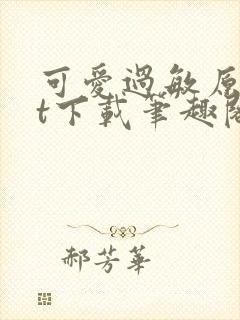 可愛過敏原
t下載筆趣閣
郝芳華